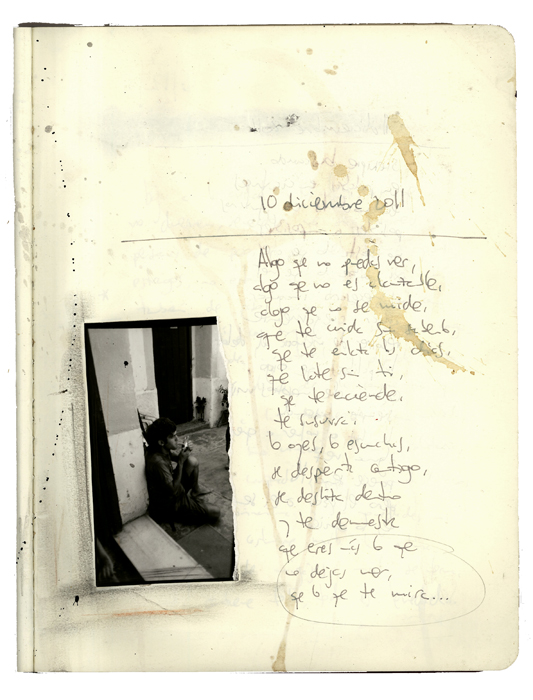 10 diciembre 2011
Algo qe no puedes ver,
algo qe no es
algo qe no se mide,
qe te cuida sin
qe te los días,
qe late sin ti,
qe te enciende,
te susurra,
lo oyes, lo escuchas,
se despierta contigo,
se desliza dentro
y te demuestra
qe eres más lo qe
no dejas ver,
qe lo qe te mira...